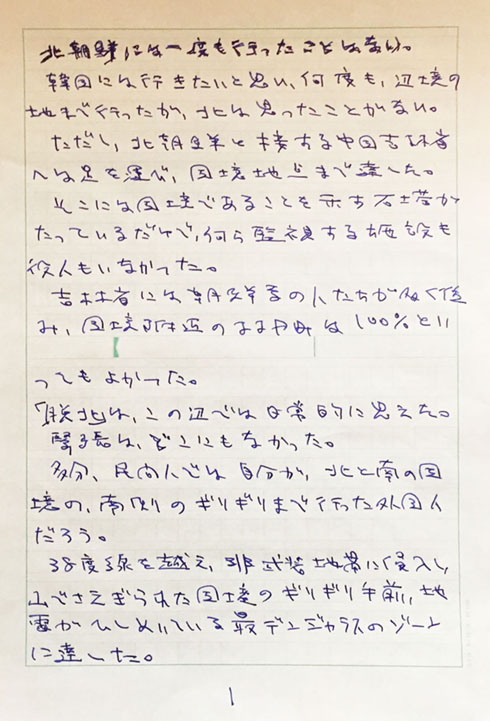 北朝鮮には一度も行ったことはない。
韓国には行きたいと思い、何度も、辺境の
地まで行ったが、北は思ったことがない。
ただし、北朝鮮と接する中国吉林省
へは足を運び、国境地点まで達した。
そこには国境であることを示す石塔が
たっているだけで、何ら監視する施設も
役人もいなかった。
吉林省には朝鮮系の人たちが多く住
み、国境附近の は100%とい
ってもよかった。
「脱北」は、この辺では日常的に思えた。
緊張は、どこにもなかった。
多分、民間人では自分が、北と南の国
境の、南側のギリギリまで行った外国人
だろう。
38度線を越え、非武装地帯に侵入し、
山でさえぎられた国境のギリギリ手前、地
雷がひしめいている最デンジャラスのゾーン
に達した。
1